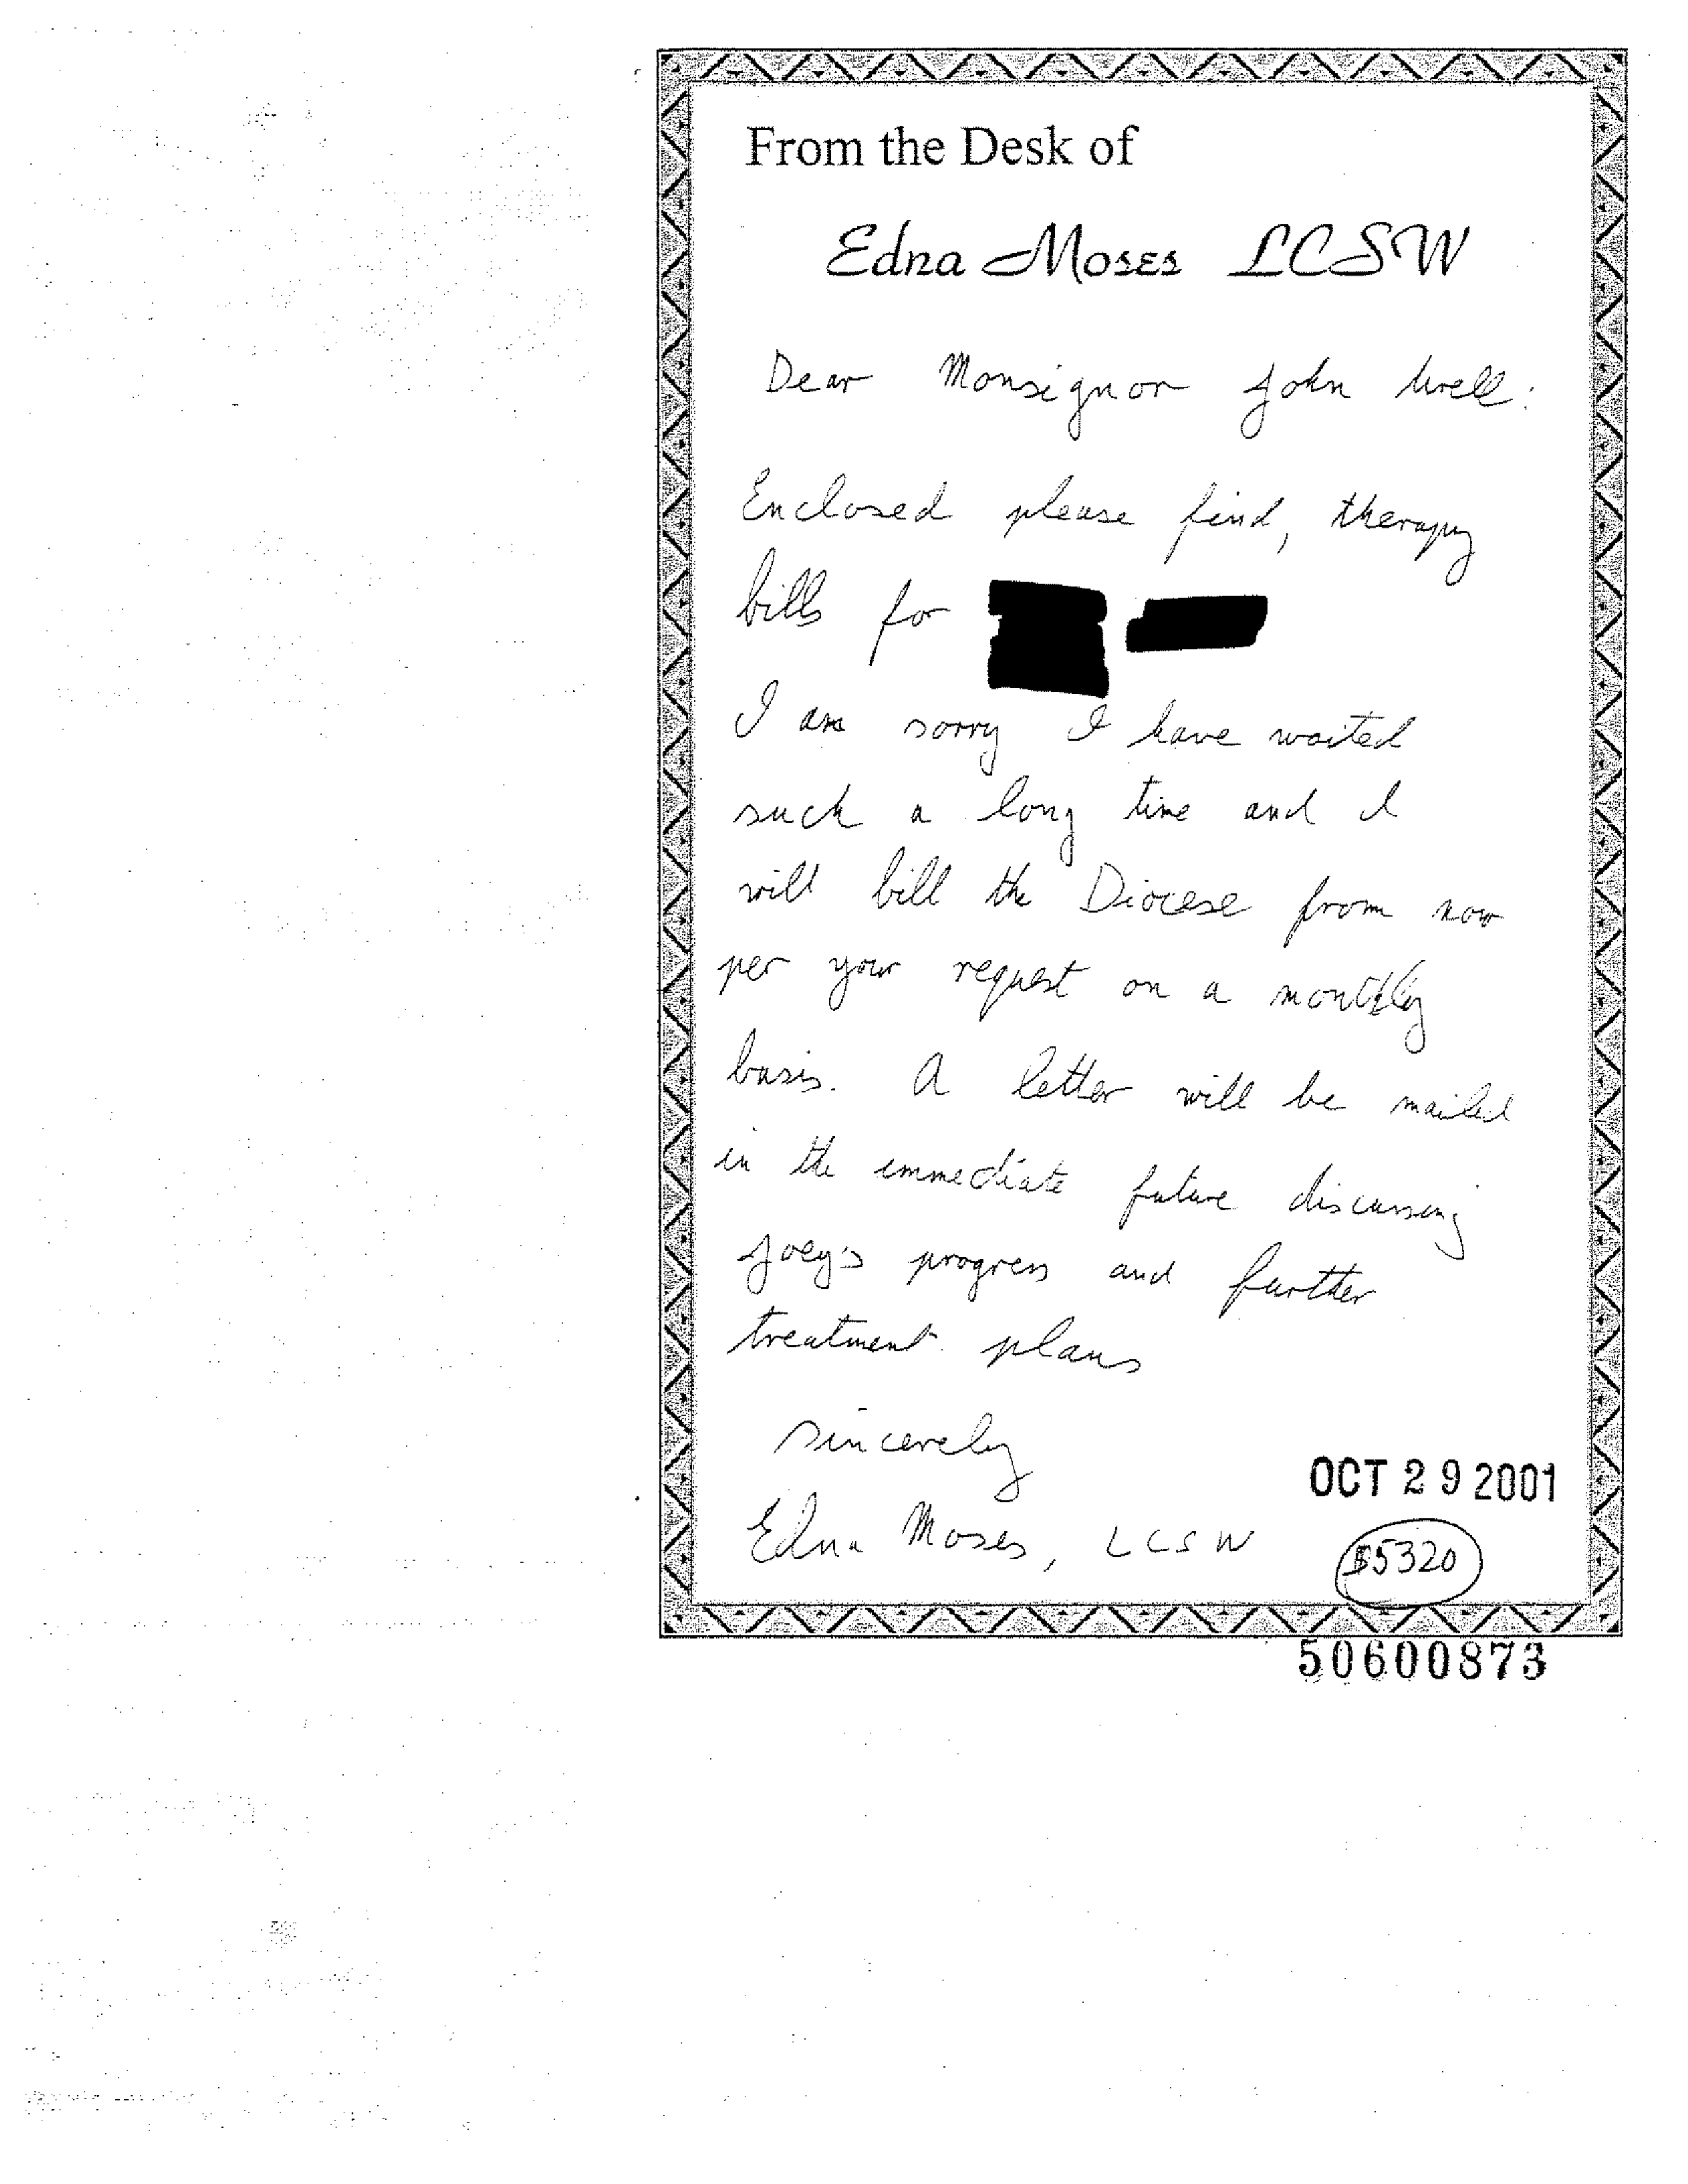 From the Desk of
Edna Moses LCSW
Dear Monsignor John
Enclosed please find, therapy
bills for
I am sorry I have waited
such a long time and I
will bill the Diocese from now
per your request on a monthly
basis. A letter will be mailed
in the immediate future discussing
Joey's progress and further
treatment plans
Sincerely
Edna Moses, LCSW
OCT 29 2001
$5320
50600873